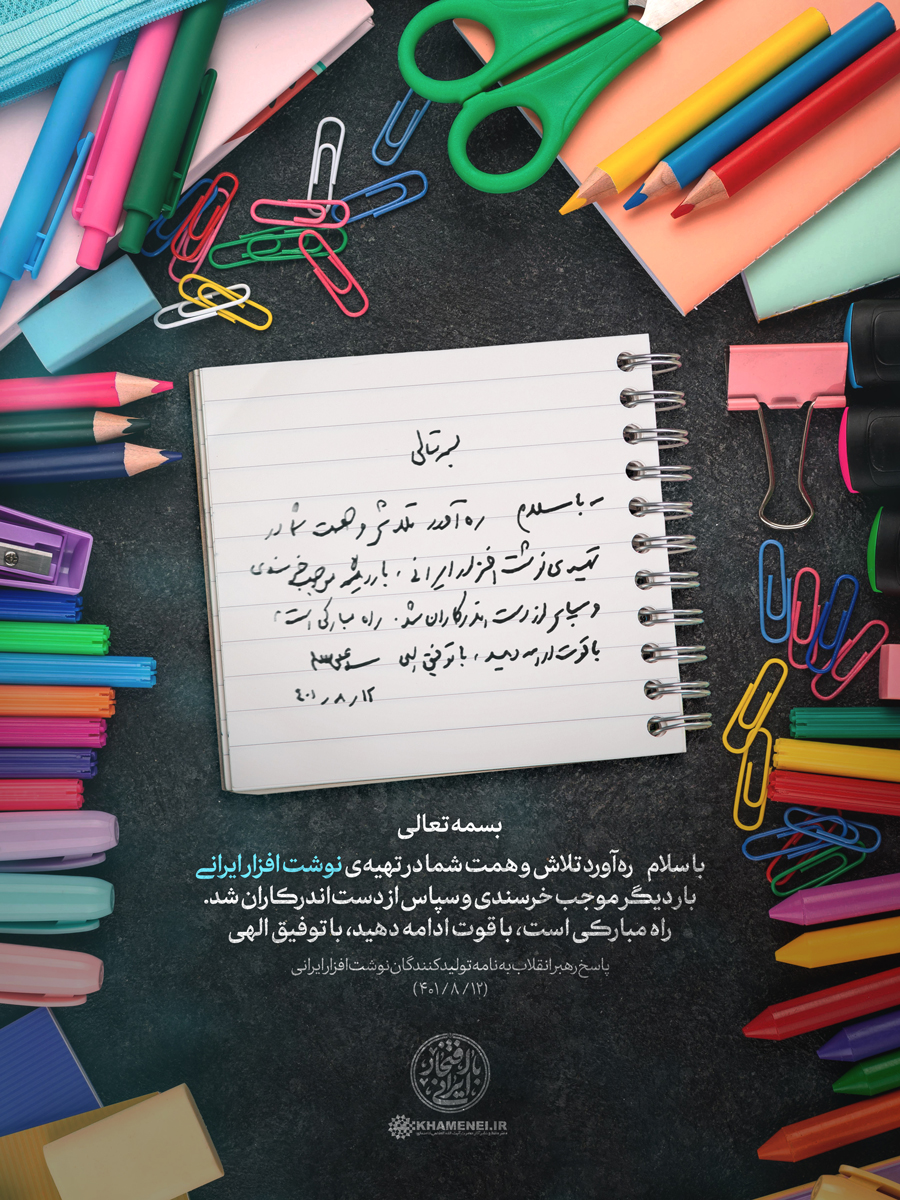 بسمه تعالی
ـ با سلام ره‌آورد تلاش و همت شما در
تهیه‌ی نوشت افزار ایرانی، بار دیگر موجب خرسندی
و سپاس از دست اندرکاران شد. راه مبارکی است،
با قوت ادامه دهید، با توفیق الهی
۴۰۱٫۸٫۱۲
بسمه تعالی
با سلام ره‌آورد تلاش و همت شما در تهیه‌ی نوشت افزار ایرانی
بار دیگر موجب خرسندی و سپاس از دست‌اندرکاران شد.
راه مبارکی است، با قوت ادامه دهید، با توفیق الهی
پاسخ رهبر انقلاب به نامه تولیدکنندگان نوشت‌افزار ایرانی
(۴۰۱/۸/۱۲)
با افتخار
ایرانی
KHAMENEI.IR